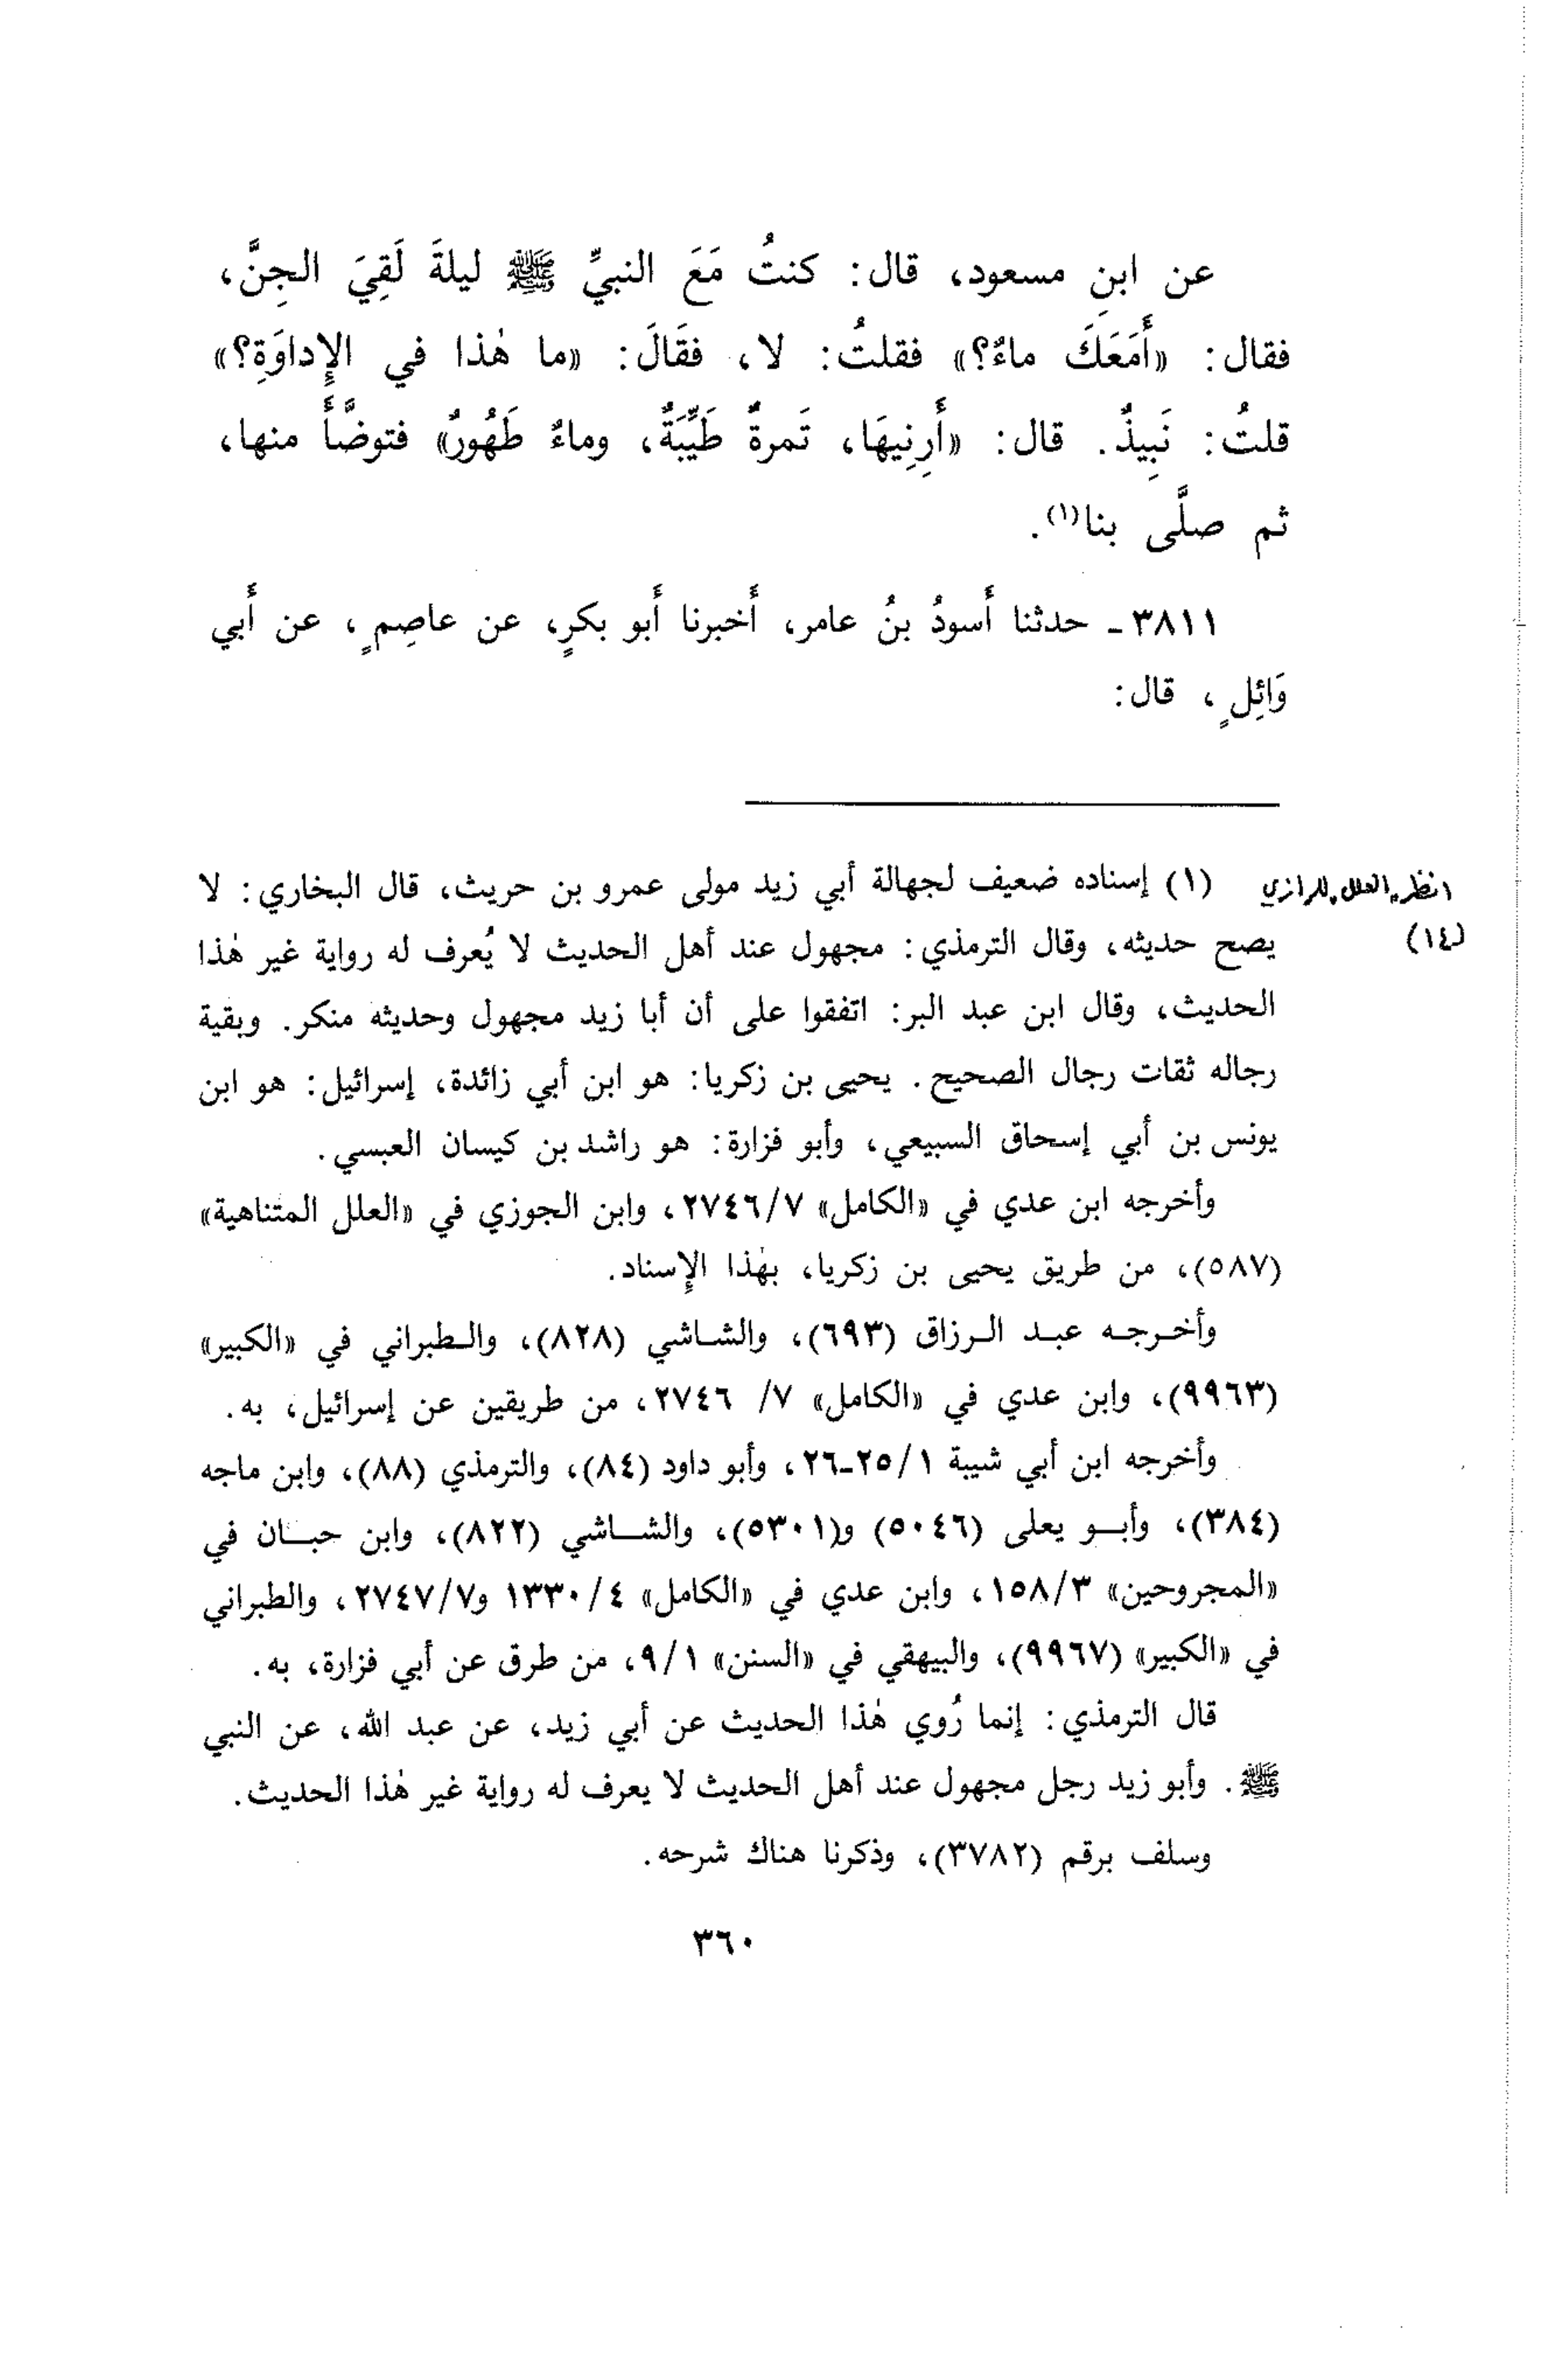 عن ابنِ مسعود، قال: كنتُ مَعَ النبيِّ ﷺ ليلةَ لَقِيَ الجِنَّ،
فقال: «أَمَعَكَ ماءٌ؟» فقلتُ: لا، فقَالَ: «ما هٰذا في الإِداوَةِ؟»
قلتُ: نَبِيذٌ. قال: «أَرِنِيهَا، تَمرةٌ طَيِّبَةٌ، وماءٌ طَهُورٌ» فتوضَّأَ منها،
ثم صلَّى بنا(١).
٣٨١١ - حدثنا أَسودُ بنُ عامر، أَخبرنا أَبو بكرٍ، عن عاصِمٍ، عن أَبي
وَائِلٍ، قال:
(١) إسناده ضعيف لجهالة أبي زيد مولى عمرو بن حريث، قال البخاري: لا
انظر العلل للرازي
(١٤)
يصح حديثه، وقال الترمذي: مجهول عند أهل الحديث لا يُعرف له رواية غير هٰذا
الحديث، وقال ابن عبد البر: اتفقوا على أن أبا زيد مجهول وحديثه منكر. وبقية
رجاله ثقات رجال الصحيح. يحيى بن زكريا: هو ابن أبي زائدة، إسرائيل: هو ابن
يونس بن أبي إسحاق السبيعي، وأبو فزارة: هو راشد بن كيسان العبسي.
وأخرجه ابن عدي في «الكامل» ٢٧٤٦/٧، وابن الجوزي في «العلل المتناهية»
(٥٨٧)، من طريق يحيى بن زكريا، بهٰذا الإِسناد.
وأخرجه عبد الرزاق (٦٩٣)، والشاشي (٨٢٨)، والطبراني في «الكبير»
(٩٩٦٣)، وابن عدي في «الكامل» ٧/ ٢٧٤٦، من طريقين عن إسرائيل، به.
وأخرجه ابن أبي شيبة ٢٥/١-٢٦، وأبو داود (٨٤)، والترمذي (٨٨)، وابن ماجه
(٣٨٤)، وأبو يعلى (٥٠٤٦) و(٥٣٠١)، والشاشي (٨٢٢)، وابن حبان في
«المجروحين» ١٥٨/٣، وابن عدي في «الكامل» ١٣٣٠/٤ و٢٧٤٧/٧، والطبراني
في «الكبير» (٩٩٦٧)، والبيهقي في «السنن» ٩/١، من طرق عن أبي فزارة، به.
قال الترمذي: إنما رُوي هٰذا الحديث عن أبي زيد، عن عبد الله، عن النبي
ﷺ. وأبو زيد رجل مجهول عند أهل الحديث لا يعرف له رواية غير هٰذا الحديث.
وسلف برقم (٣٧٨٢)، وذكرنا هناك شرحه.
٣٦٠